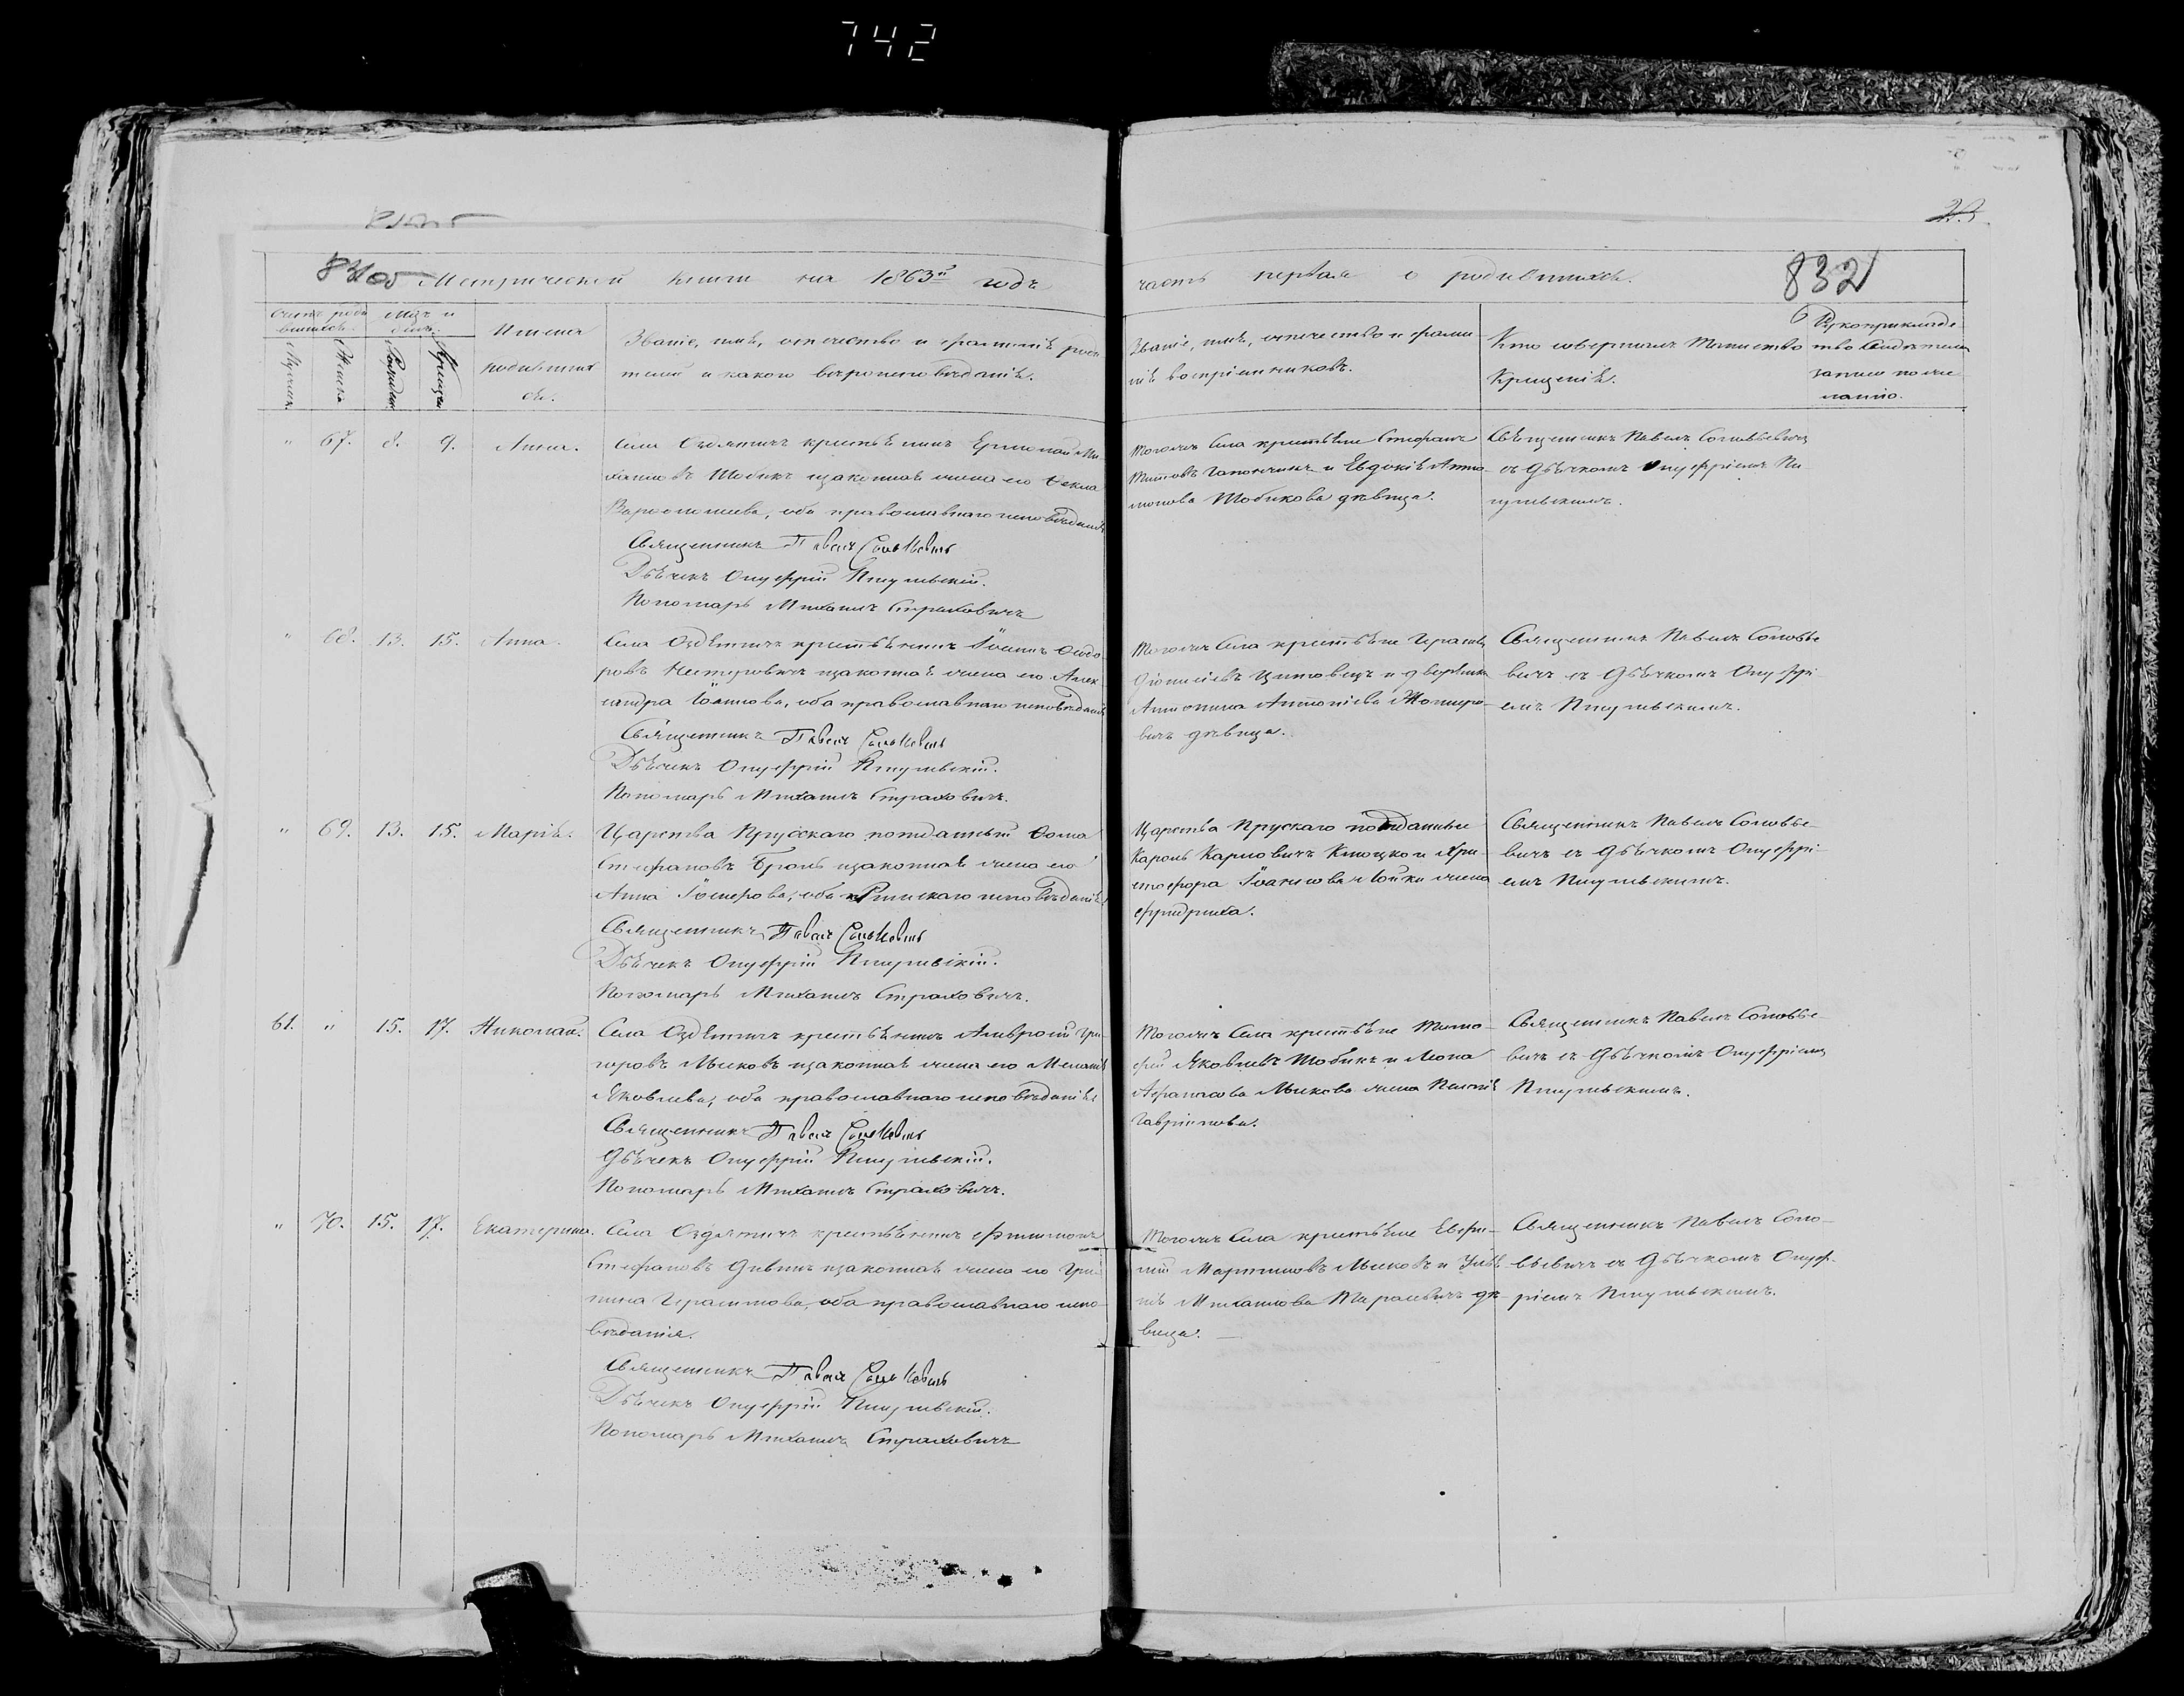 742
832
Метрической книги на 1863й годъ
часть первая о родившихся.
Счетъ роди
вшихся.
Мѣс. и
дни.
Имена
родивших
ся.
Званіе, имя, отчество и фамилія роди
телей и какого вѣроисповѣданія.
Званіе, имя, отчество и фами-
лія воспріемниковъ.
Кто совершалъ таинство
Крещенія.
Рукоприкладс
тво Свидѣтелей
записи по же
ланію.
" 67. 8. 9. Анна.
Села Оздятичъ крестьянинъ Ермолай Ми-
хаиловъ Шобикъ и законная жена его Ѳекла
Варѳоломеева, оба православнаго исповѣданія
Священникъ Павелъ Соловьевичъ
Дьячекъ Онуфрій Пигулевскій.
Пономарь Михаилъ Страховичъ
Тогожъ Села крестьяне Стефанъ
Титовъ Гапончикъ и Евдокія Анто-
нова Шобикова дѣвица.
Священникъ Павелъ Соловьевичъ
съ Дьячкомъ Онуфріемъ Пи-
гулевскимъ.
" 68. 13. 15. Анна.
Села Оздятичъ крестьянинъ Іоаннъ Ѳедо-
ровъ Нестеровичъ и законная жена его Алек-
сандра Іоаннова, оба православнаго исповѣданія
Священникъ Павелъ Соловьевичъ
Дьячекъ Онуфрій Пигулевскій.
Пономарь Михаилъ Страховичъ.
Тогожъ Села крестьяне Герасимъ
Діонисіевъ и дворянка
Антонина Антоніева
вичъ дѣвица.
Священникъ Павелъ Соловье
вичъ съ Дьячкомъ Онуфрі-
емъ Пигулевскимъ.
" 69. 13. 15. Марія.
Царства Прусскаго подданный Ѳома
Стефановъ Броль и законная жена его
Анна Іосифова, оба Римскаго исповѣданія.
Священникъ Павелъ Соловьевичъ
Дьячекъ Онуфрій Пигулевскій.
Пономарь Михаилъ Страховичъ.
Царства Прускаго подданные
Кароль Карловичъ и Хри-
стофора Іоаннова жена
Фридриха.
Священникъ Павелъ Соловье-
вичъ съ Дьячкомъ Онуфрі-
емъ Пигулевскимъ.
61. " 15. 17. Николай.
Села Оздятичъ крестьянинъ Амвросій Гри-
горовъ Мысковъ и законная жена его Меланія
Яковлева, оба православнаго исповѣданія
Священникъ Павелъ Соловьевичъ
Дьячекъ Онуфрій Пигулевскій.
Пономарь Михаилъ Страховичъ.
Тогожъ Села крестьяне Тимо-
фей Яковлевъ Шобикъ и
Афанасова Мыскова жена
Гавріилова.
Священникъ Павелъ Соловье-
вичъ съ Дьячкомъ Онуфріемъ
Пигулевскимъ.
" 70. 15. 17. Екатерина.
Села Оздятичъ крестьянинъ Филимонъ
Стефановъ и законная жена его Ири-
нна Герасимова, оба православнаго испо-
вѣданія.
Священникъ Павелъ Соловьевичъ
Дьячекъ Онуфрій Пигулевскій.
Пономарь Михаилъ Страховичъ
Тогожъ Села крестьяне
Мартиновъ Мысковъ и Улья-
на Михаилова Тарасевичъ дѣ-
вица.
Священникъ Павелъ Соло-
вьевичъ съ Дьячкомъ Онуф-
ріемъ Пигулевскимъ.